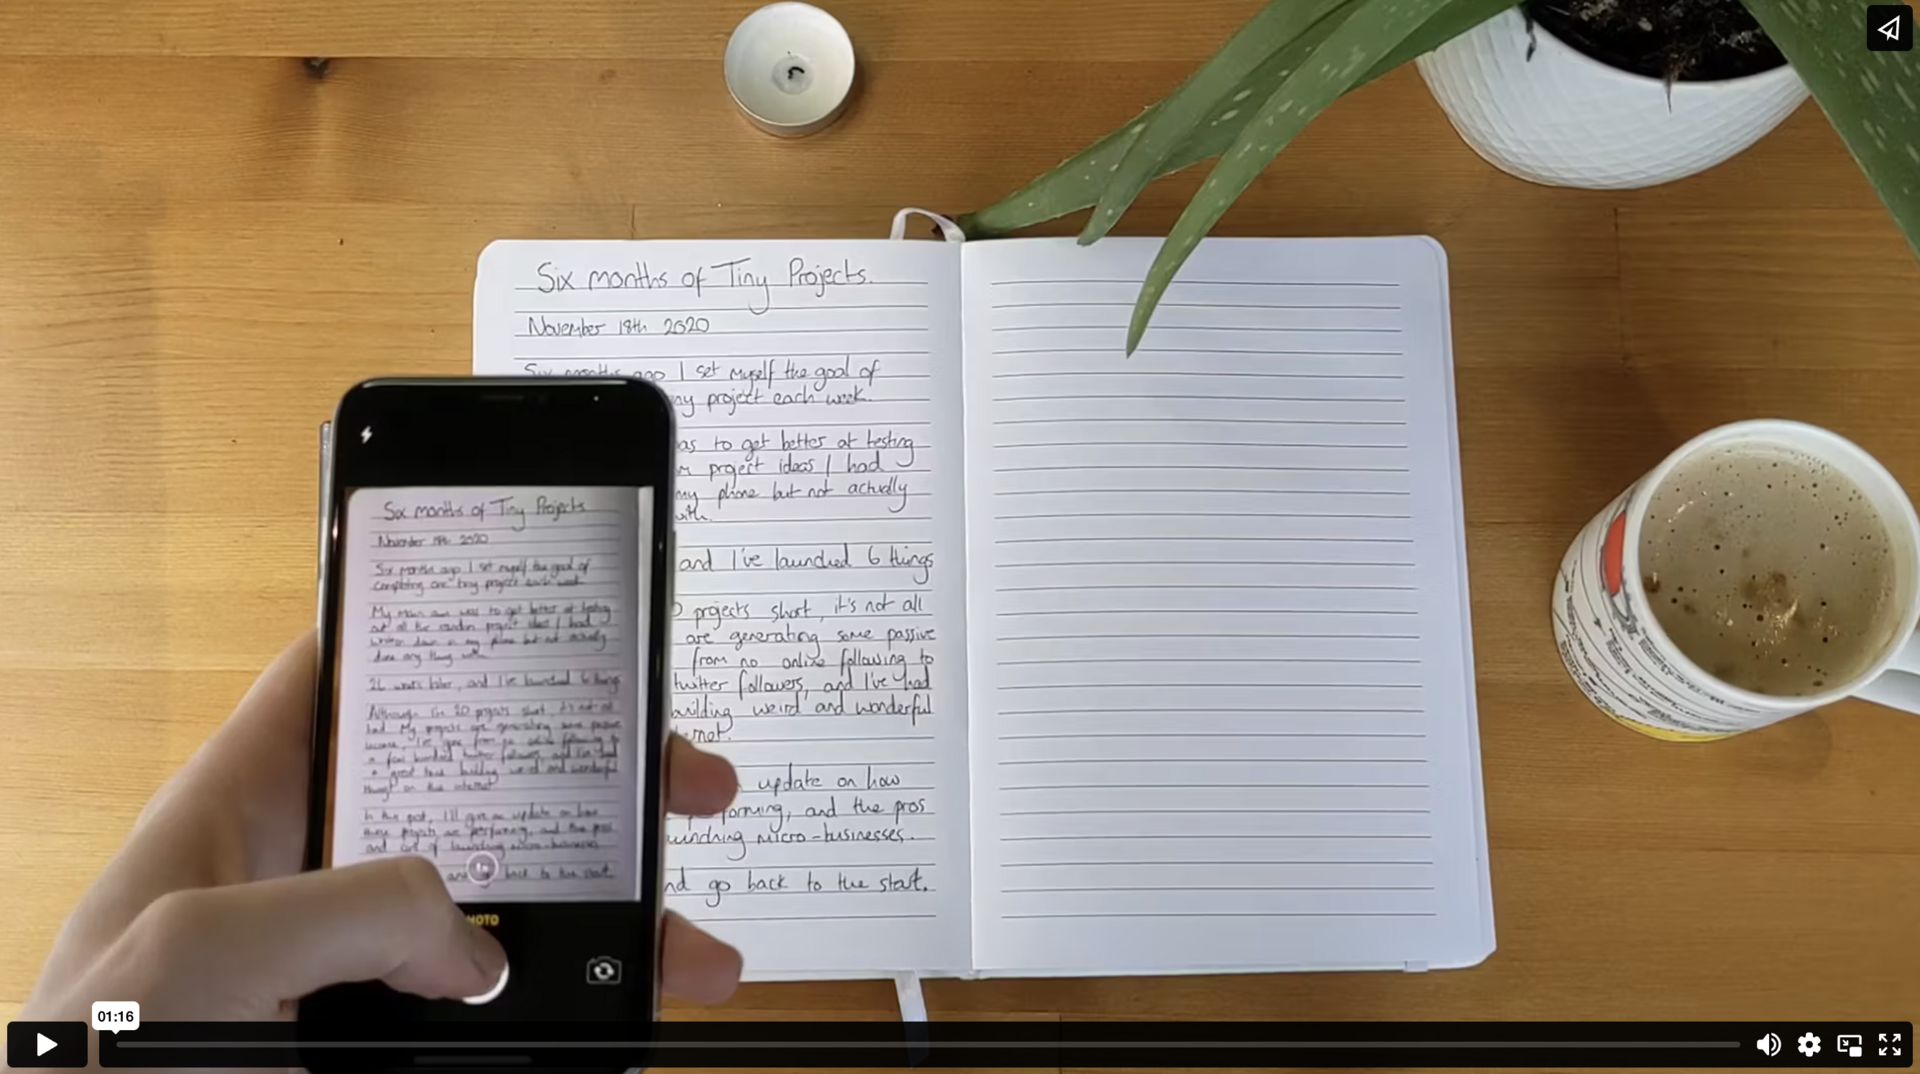 Six months of Tiny Projects.
November 18th 2020
Six months ago I set myself the goal of
project each week.
to get better at testing
project ideas I had
my phone but not actually
with.
and I've launched 6 things
projects short, it's not all
are generating some passive
from no online following to
twitter followers, and I've had
building weird and wonderful
update on how
and the pros
micro-businesses.
go back to the start.
Six months of Tiny Projects
November 18th 2020
Six months ago I set myself the goal of
completing one tiny project each week
My main aim was to get better at testing
out all the random project ideas I had
written down in my phone but not actually
done any thing with
26 weeks later, and I've launched 6 things
Although I'm 20 projects short, it's not all
bad. My projects are generating some passive
income, I've gone from no online following to
a few hundred twitter followers, and I've had
a great time building weird and wonderful
things on the internet
In this post, I'll give an update on how
these projects are performing, and the pros
and cons of launching micro-businesses
and go back to the start.
01:16